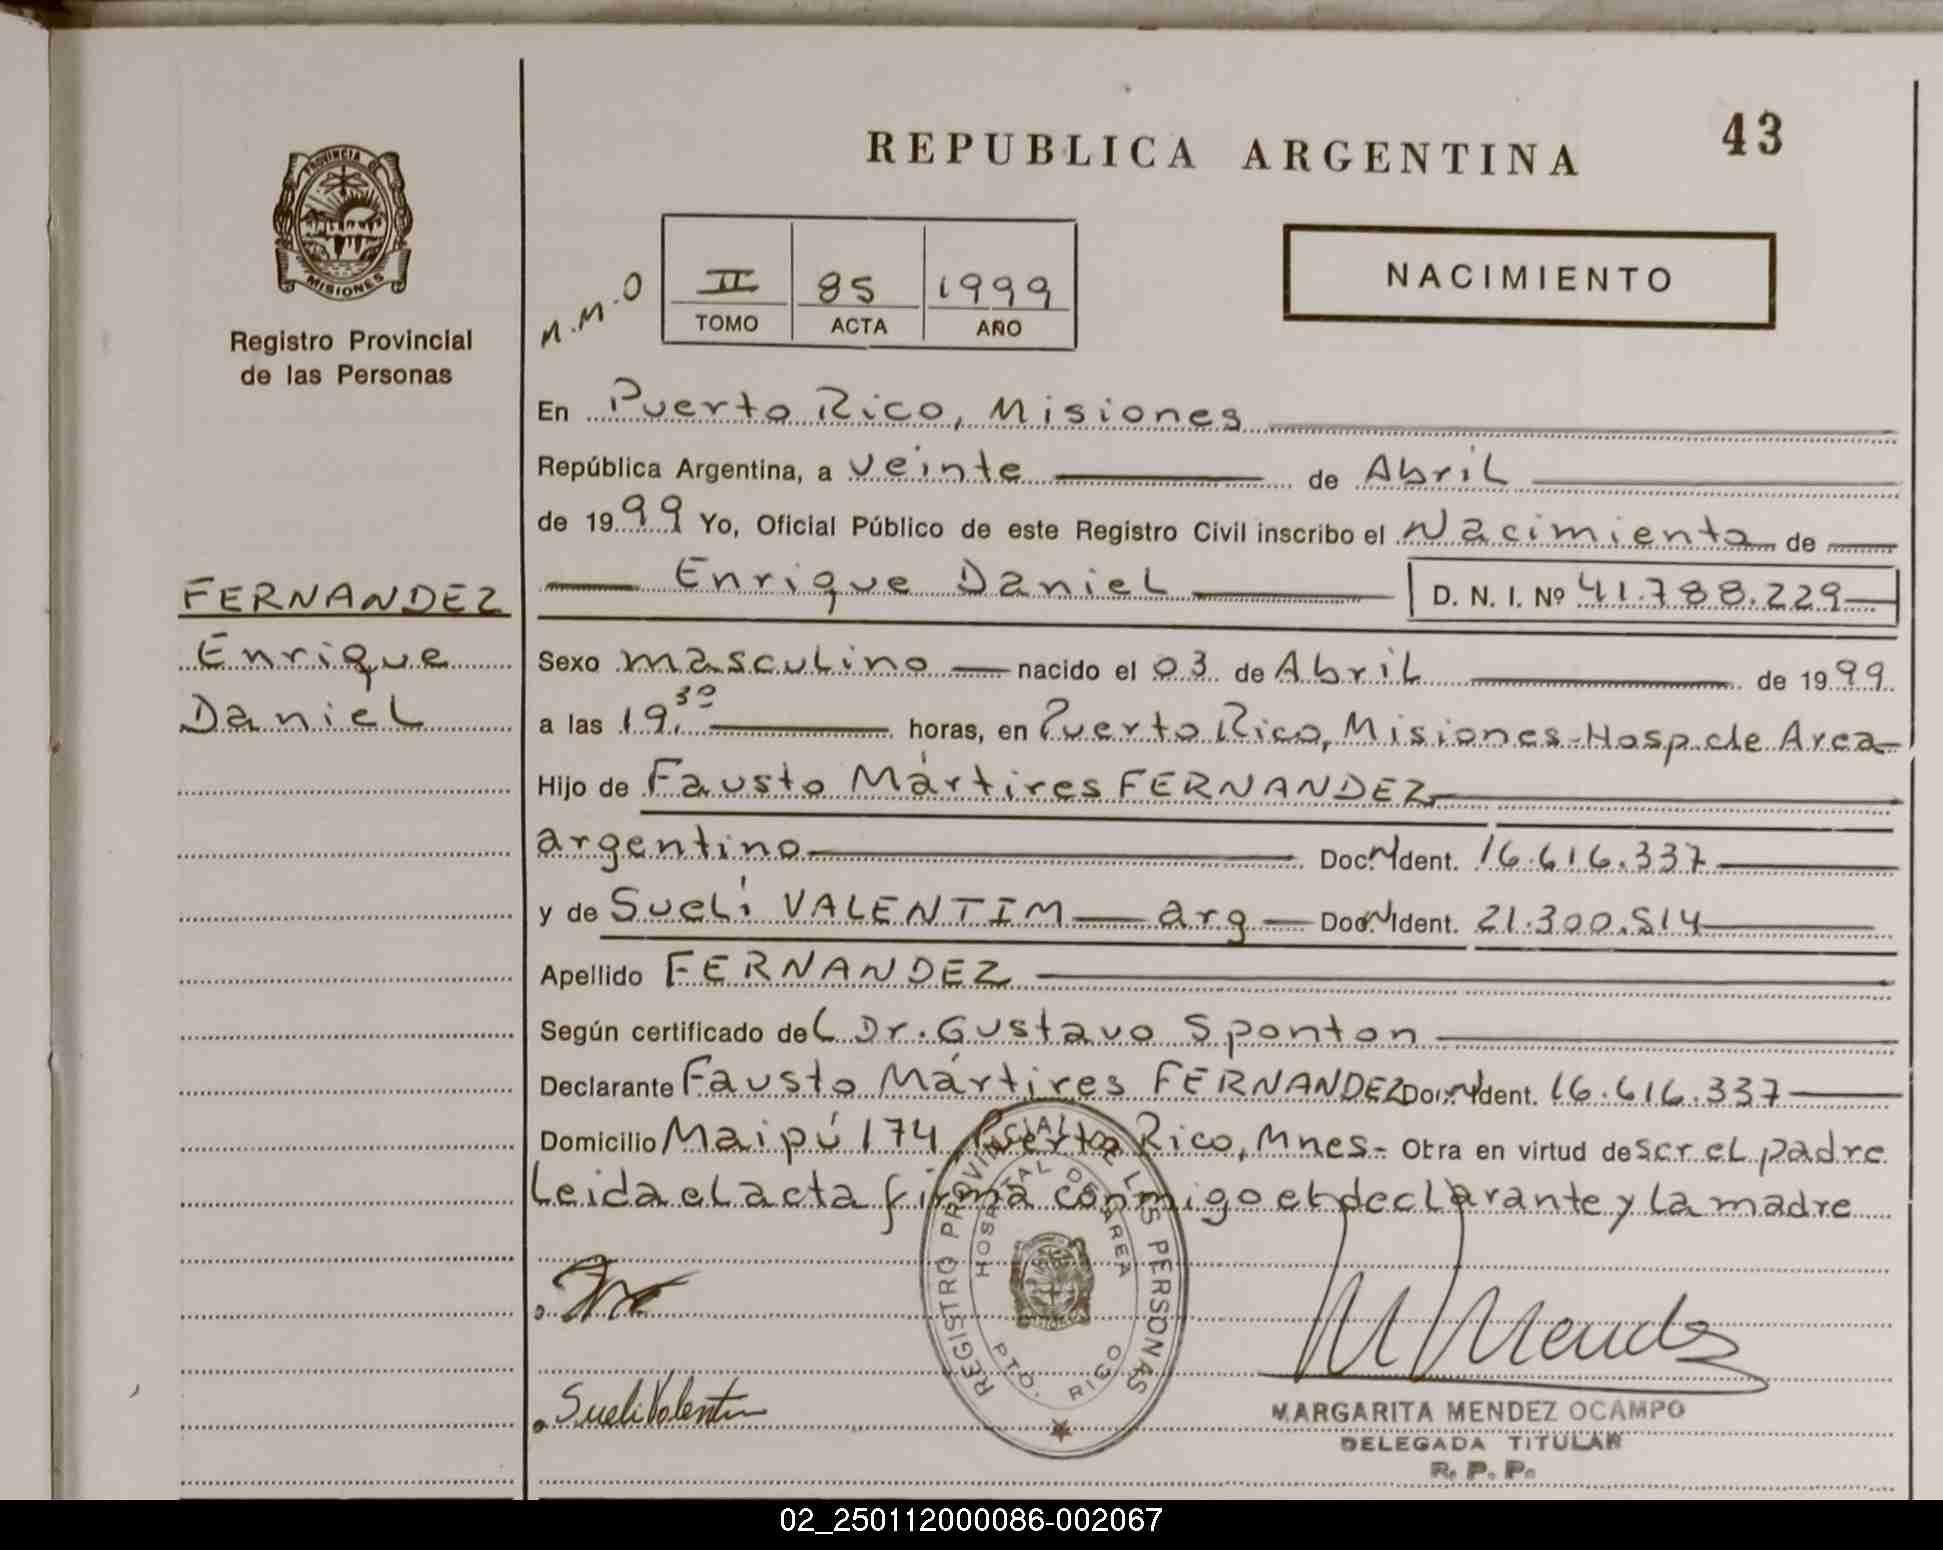 REPUBLICA ARGENTINA
43
PROVINCIA DE
MISIONES
Registro Provincial
de las Personas
M.M.O
II 85 1999
TOMO ACTA AÑO
NACIMIENTO
En Puerto Rico, Misiones
República Argentina, a veinte de Abril
de 1999 Yo, Oficial Público de este Registro Civil inscribo el Nacimiento de
Enrique Daniel D. N. I. Nº 41.788.229
FERNANDEZ
Enrique
Daniel
Sexo masculino nacido el 03 de Abril de 1999
a las 19.30 horas, en Puerto Rico, Misiones-Hosp.de Area
Hijo de Fausto Mártires FERNANDEZ
argentino Doc.N Ident. 16.616.337
y de Sueli VALENTIM arg Doc.N Ident. 21.300.514
Apellido FERNANDEZ
Según certificado del Dr. Gustavo Sponton
Declarante Fausto Mártires FERNANDEZ Doc.N Ident. 16.616.337
Domicilio Maipú 174 Puerto Rico, Mnes- Otra en virtud de ser el padre
Leida el acta firma conmigo el declarante y la madre
REGISTRO PROVINCIAL DE LAS PERSONAS
HOSPITAL DE AREA
PTO. RICO
Sueli Valentim
M Mendez
MARGARITA MENDEZ OCAMPO
DELEGADA TITULAR
R. P. P.
02_250112000086-002067